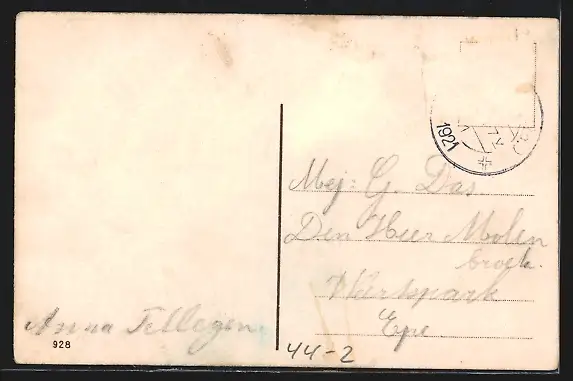 1921
Mej: G. Das
Den Heer Molen
broek.
Wkerspark
Epe
Anna Tellegen
928
44-2